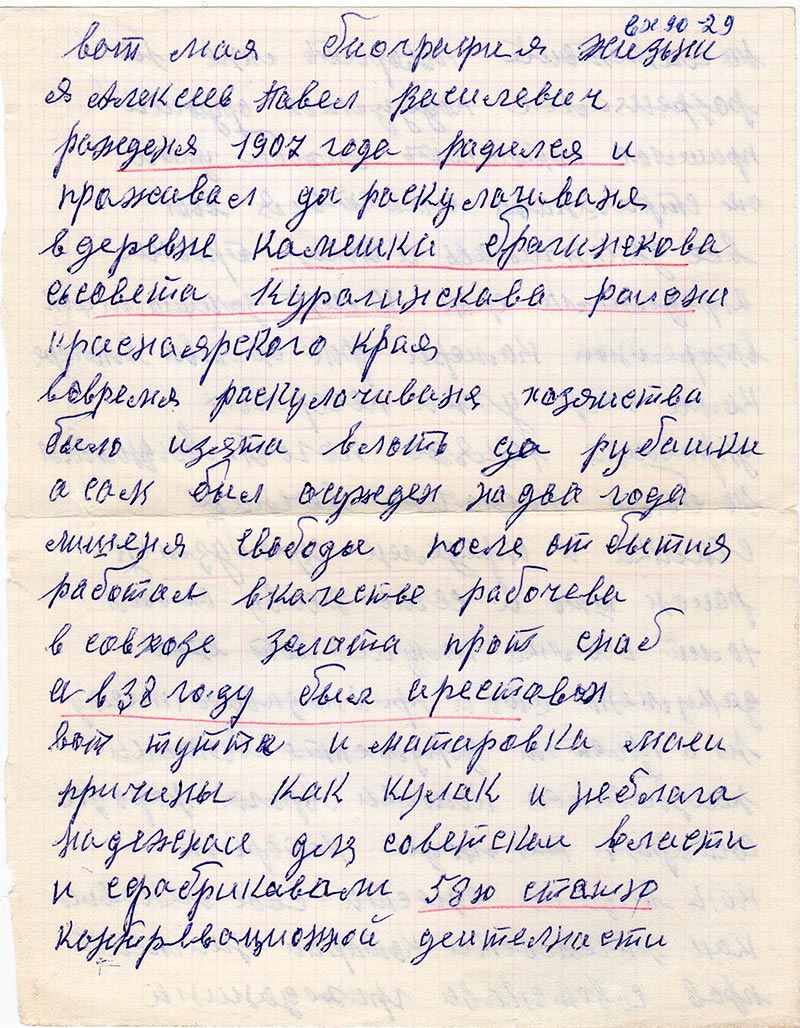 вх 90-29
вот моя биография жизни
я Алексеев Павел Василевич
рожденя 1907 года радился и
проживал до раскулачиваня
в деревне Камешки брагинскова
сьсовета Курагинскава района
красноярского края
вовремя раскулачиваня хозяиства
было изята влоть до рубашки
а сам был осужден на два года
лишеня свободы после отбытия
работал в качестве рабочева
в совхозе золата прот снаб
а в 38 году был арестован
вот тутта и матаровка маеи
причины как кулак и неблага
надежнаи для советскои власти
и сфабрикавали 58ю статю
контрревационной деителности